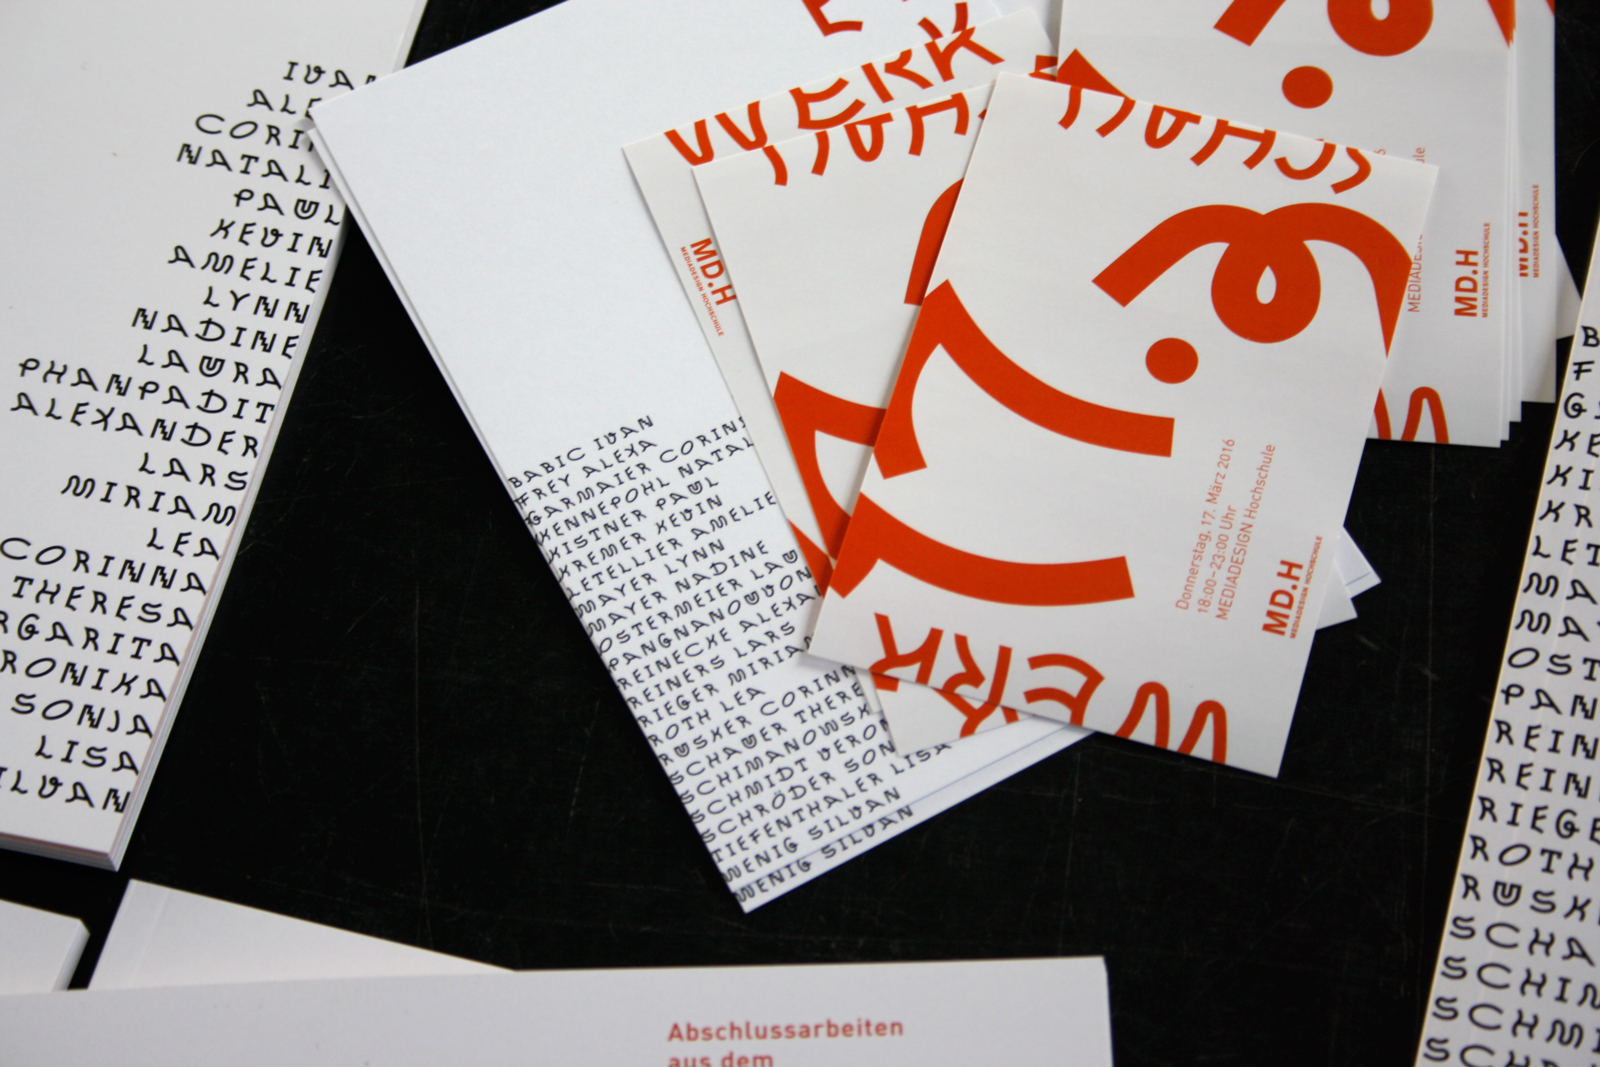 IVAN
CORI
NATALI
PAUL
KEVIN
AMELIE
LYNN
NADINE
LAURA
PHANPADIT
ALEXANDER
LARS
MIRIAM
LEA
CORINNA
THERESA
RGARITA
RONIKA
SONJA
LISA
ILVAN
BABIC IVAN
FREY ALEXA
GARMAIER CORINN
HENNEPOHL NATAL
KISTNER PAUL
KREMER KEVIN
LETELLIER AMELIE
MAYER LYNN
MAYER NADINE
OSTERMEIER LAU
PANGNANOUVON
REINECKE ALEXA
REINERS LARS
RIEGER MIRIA
ROTH LEA
RUSKER CORINN
SCHAUER THERE
SCHIMANOWSK
SCHMIDT VERON
SCHRÖDER SON
TIEFENTHALER LISA
WENIG SILVAN
WENIG SILVAN
WERK
MD.H
MEDIADESIGN HOCHSCHULE
SCHAU
WERK
Donnerstag, 17. März 2016
18:00–23:00 Uhr
MEDIADESIGN Hochschule
MD.H
MEDIADESIGN HOCHSCHULE
MEDIADESI
MD.H
MEDIADESIGN HOCHSCHULE
MD.H
MEDIADESIGN HOCHSCHULE
B
F
G
KE
KI
KR
LET
MA
MAY
OST
PAN
REIN
REIN
RIEGE
ROTH
RUSK
SCHA
SCHIM
SCHMI
SCHR
Abschlussarbeiten
aus dem